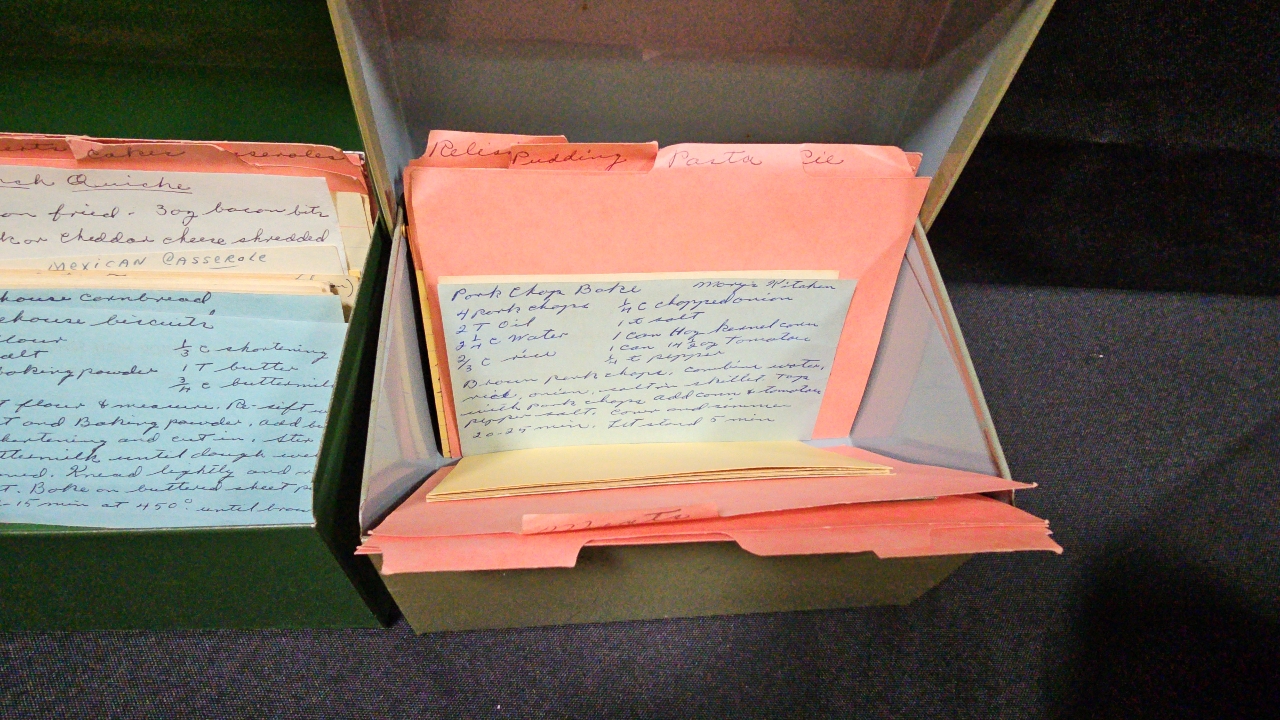 cakes
Quiche
on fried. 3oz bacon bits
or cheddar cheese shredded
MEXICAN CASSEROLE
house cornbread
house biscuits
flour 1/3 c shortening
salt 1 T butter
baking powder 3/4 c buttermilk
flour & measure. Re-sift
and Baking powder, add
shortening and cut in. Stir
buttermilk until dough
Knead lightly and
Bake on buttered sheet
15 min at 450° until
Pudding Pasta Pie
Pork Chop Bake Mary's Kitchen
4 pork chops 1/4 c chopped onion
2 T Oil 1 t salt
2 1/4 c Water 1 can 14oz kernel corn
2/3 c rice 1 can 14 1/2 oz Tomatoes
1/4 t pepper
Brown pork chops. combine water,
rice, onion, salt in skillet Top
with pork chops add corn & tomatoes
pepper salt. Cover and simmer
20-25 min. Let stand 5 min
Meats